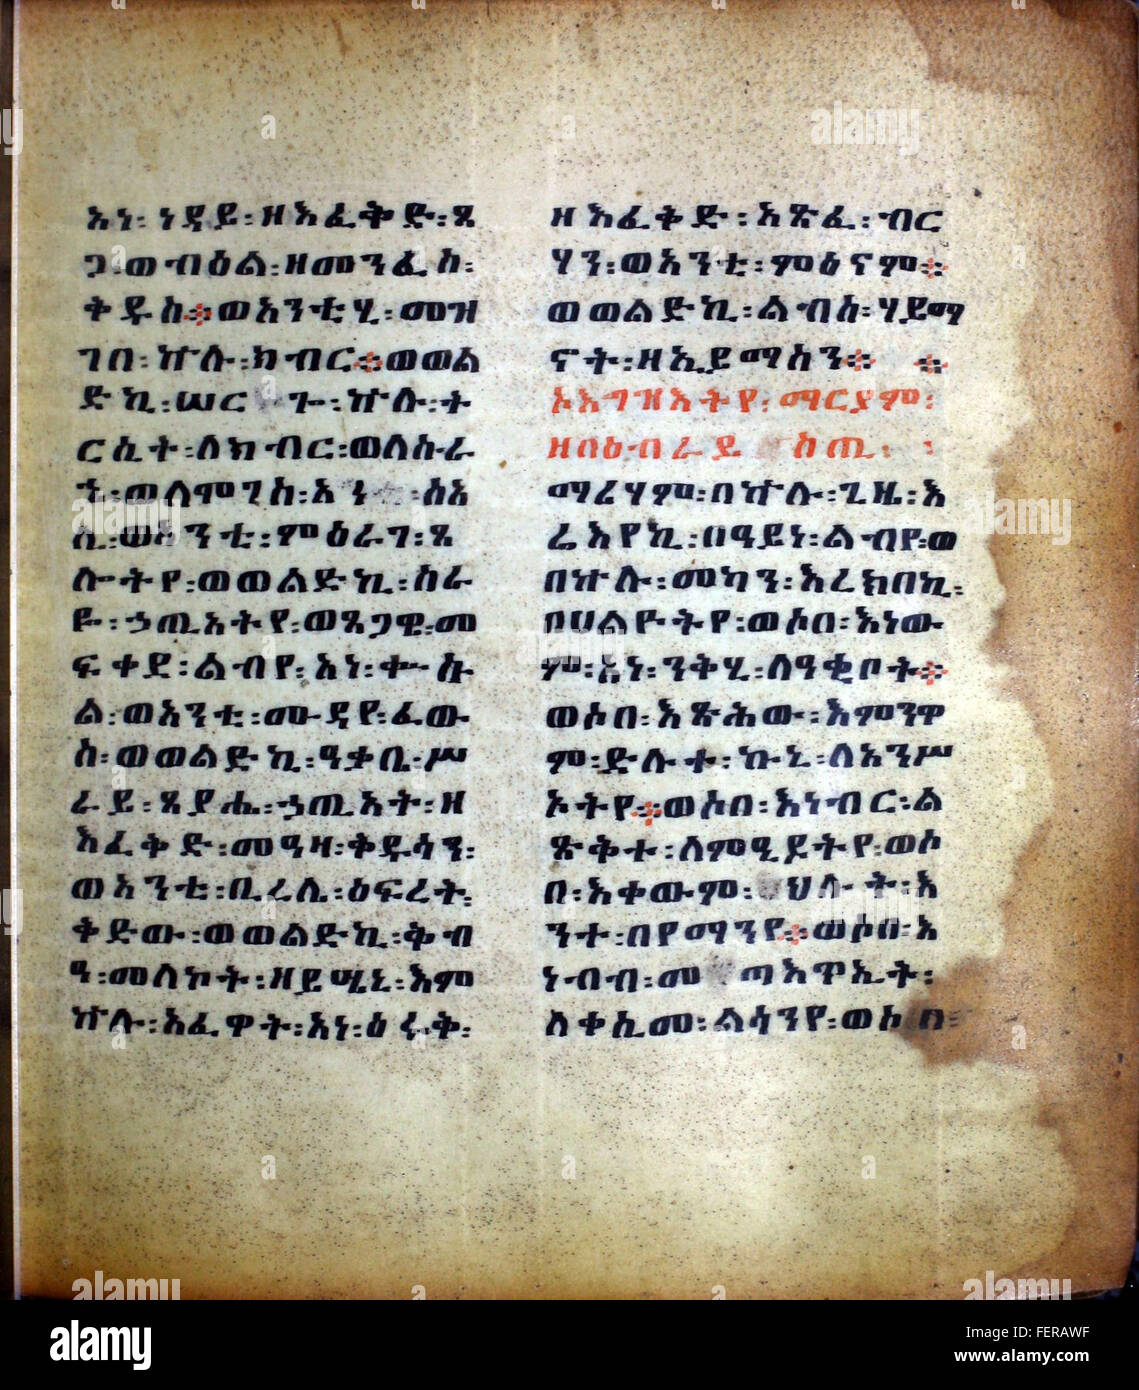 አነ፡ ነዳይ፡ ዘእፈቅድ፡ ጸ
ጋ፡ ወብዕል፡ ዘመንፈስ፡
ቅዱስ፨ ወአንቲሂ፡ መዝ
ገበ፡ ኵሉ፡ ክብር፨ ወወል
ድኪ፡ ሠር ጐ፡ ኵሉ፡ ተ
ርሲት፡ ለክብር፡ ወለስራ
ኄ፡ ወለሞገስ፡ አነ ሰአ
ሊ፡ ወአንቲ፡ ምዕራገ፡ ጸ
ሎትየ፡ ወወልድኪ፡ ሰራ
ዬ፡ ኃጢአትየ፡ ወጸጋዊ፡ መ
ፍቀደ፡ ልብየ፡ አነ፡ ቍሱ
ል፡ ወአንቲ፡ ሙዳየ፡ ፈው
ስ፡ ወወልድኪ፡ ዓቃቤ፡ ሥ
ራይ፡ ጸያሔ፡ ኃጢአት፡ ዘ
እፈቅድ፡ መዓዛ፡ ቅዱሳን፡
ወአንቲ፡ ቢረሌ፡ ዕፍረት፡
ቅድው፡ ወወልድኪ፡ ቅብ
ዓ፡ መለኮት፡ ዘይሤኒ፡ እም
ኵሉ፡ አፈዋት፡ አነ፡ ዕሩቅ፡
ዘእፈቅድ፡ አጽፈ፡ ብር
ሃን፡ ወአንቲ፡ ምዕናም፨
ወወልድኪ፡ ልብሰ፡ ሃይማ
ኖት፡ ዘኢይማስን፨ ፨
ኦእግዝእትየ፡ ማርያም፡
ዘበዕብራይ ስጢ፡ ፡
ማሪሃም፡ በኵሉ፡ ጊዜ፡ እ
ሬእየኪ፡ በዓይነ፡ ልብየ፡ ወ
በኵሉ፡ መካን፡ እረክበኪ፡
በሀልዮትየ፡ ወሶበ፡ እነው
ም፡ አነ፡ ንቅሂ፡ ለዓቂቦት፨
ወሶበ፡ እጽሕው፡ እምንዋ
ም፡ ድሉተ፡ ኩኒ፡ ለአንሥ
ኦትየ፨ ወሶበ፡ እነብር፡ ል
ጽቅተ፡ ለምዒዶትየ፡ ወሶ
በ፡ እቀውም፡ ህሉት፡ አ
ንተ፡ በየማንየ፨ ወሶበ፡ አ
ነብብ፡ መ ጣእጥኢት፡
ለቀሊመ፡ ልሳንየ፡ ወሶበ፡